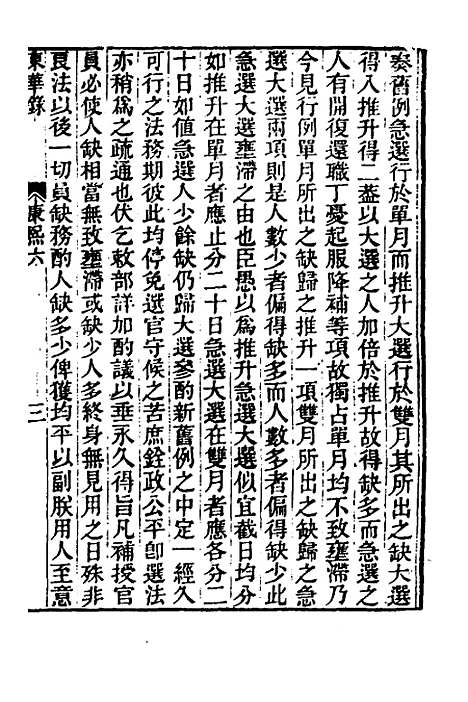 奏舊例急選行於單月而推升大選行於雙月其所出之缺大選
得八推升得二蓋以大選之人加倍於推升故得缺多而急選之
人有開復還職丁憂起服降補等項故獨占單月均不致壅滯乃
今見行例單月所出之缺歸之推升一項雙月所出之缺歸之急
選大選兩項則是人數少者偏得缺多而人數多者偏得缺少此
急選大選壅滯之由也臣愚以爲推升急選大選似宜截日均分
如推升在單月者應止分二十日急選大選在雙月者應各分二
十日如值急選人少餘缺仍歸大選參酌新舊例之中定一經久
可行之法務期彼此均停免選官守候之苦庶銓政公平卽選法
亦稍爲之疏通也伏乞敕部詳加酌議以垂永久得旨凡補授官
員必使人缺相當無致壅滯或缺少人多終身無見用之日殊非
良法以後一切員缺務酌人缺多少俾獲均平以副朕用人至意
東華錄 康熙六 三